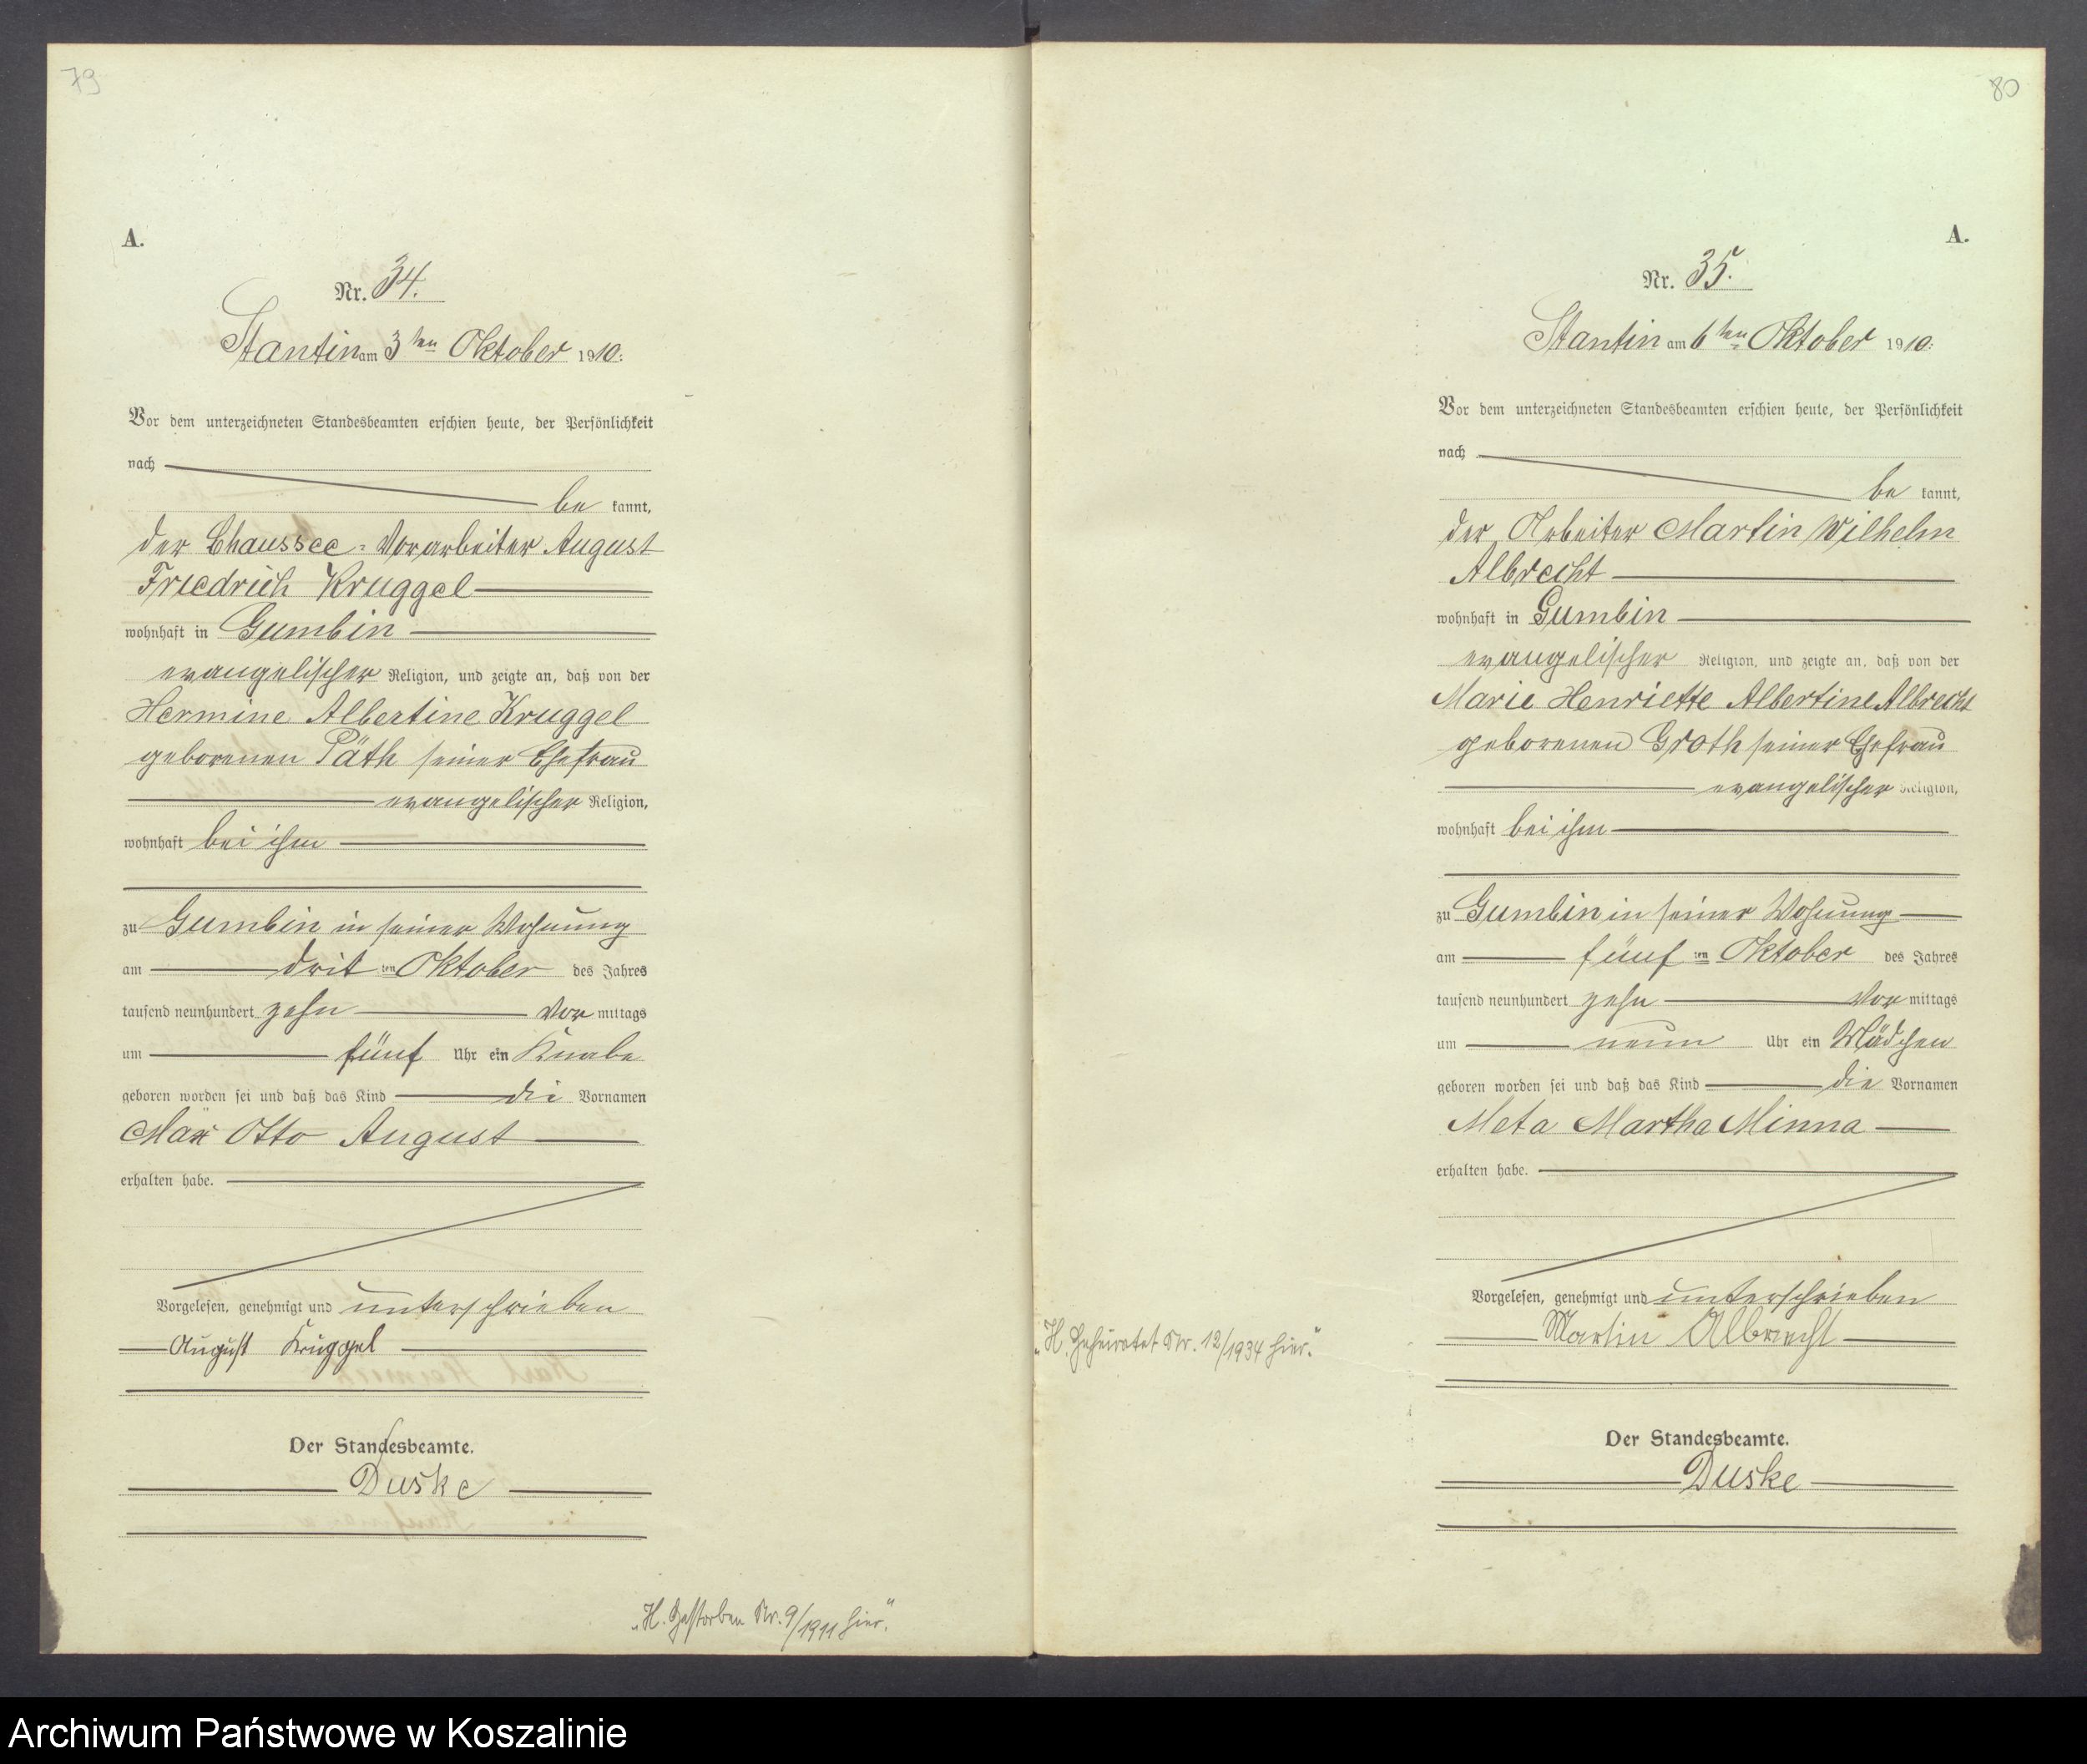 79
A.
Nr. 34.
Stantin am 3ten Oktober 1910:
Vor dem unterzeichneten Standesbeamten erschien heute, der Persönlichkeit
nach
be kannt,
der Chaussee-Vorarbeiter August
Friedrich Kruggel
wohnhaft in Gumbin
evangelischer Religion, und zeigte an, daß von der
Hermine Albertine Kruggel
geborenen Päth seiner Ehefrau
evangelischer Religion,
wohnhaft bei ihm
zu Gumbin in seiner Wohnung
am dritten Oktober des Jahres
tausend neunhundert zehn Vormittags
um fünf Uhr ein Knabe
geboren worden sei und daß das Kind die Vornamen
Max Otto August
erhalten habe.
Vorgelesen, genehmigt und unterschrieben
August Krüggel
Der Standesbeamte.
Duske
„H. Gestorben Nr. 9/1911 hier."
80
A.
Nr. 35.
Stantin am 6ten Oktober 1910:
Vor dem unterzeichneten Standesbeamten erschien heute, der Persönlichkeit
nach
be kannt,
der Arbeiter Martin Wilhelm
Albrecht
wohnhaft in Gumbin
evangelischer Religion, und zeigte an, daß von der
Marie Henriette Albertine Albrecht
geborenen Groth seiner Ehefrau
evangelischer Religion,
wohnhaft bei ihm
zu Gumbin in seiner Wohnung
am fünften Oktober des Jahres
tausend neunhundert zehn Vormittags
um neun Uhr ein Mädchen
geboren worden sei und daß das Kind die Vornamen
Meta Martha Minna
erhalten habe.
Vorgelesen, genehmigt und unterschrieben
„H. Geheiratet Nr. 12/1934 hier."
Martin Albrecht
Der Standesbeamte.
Duske
Archiwum Państwowe w Koszalinie